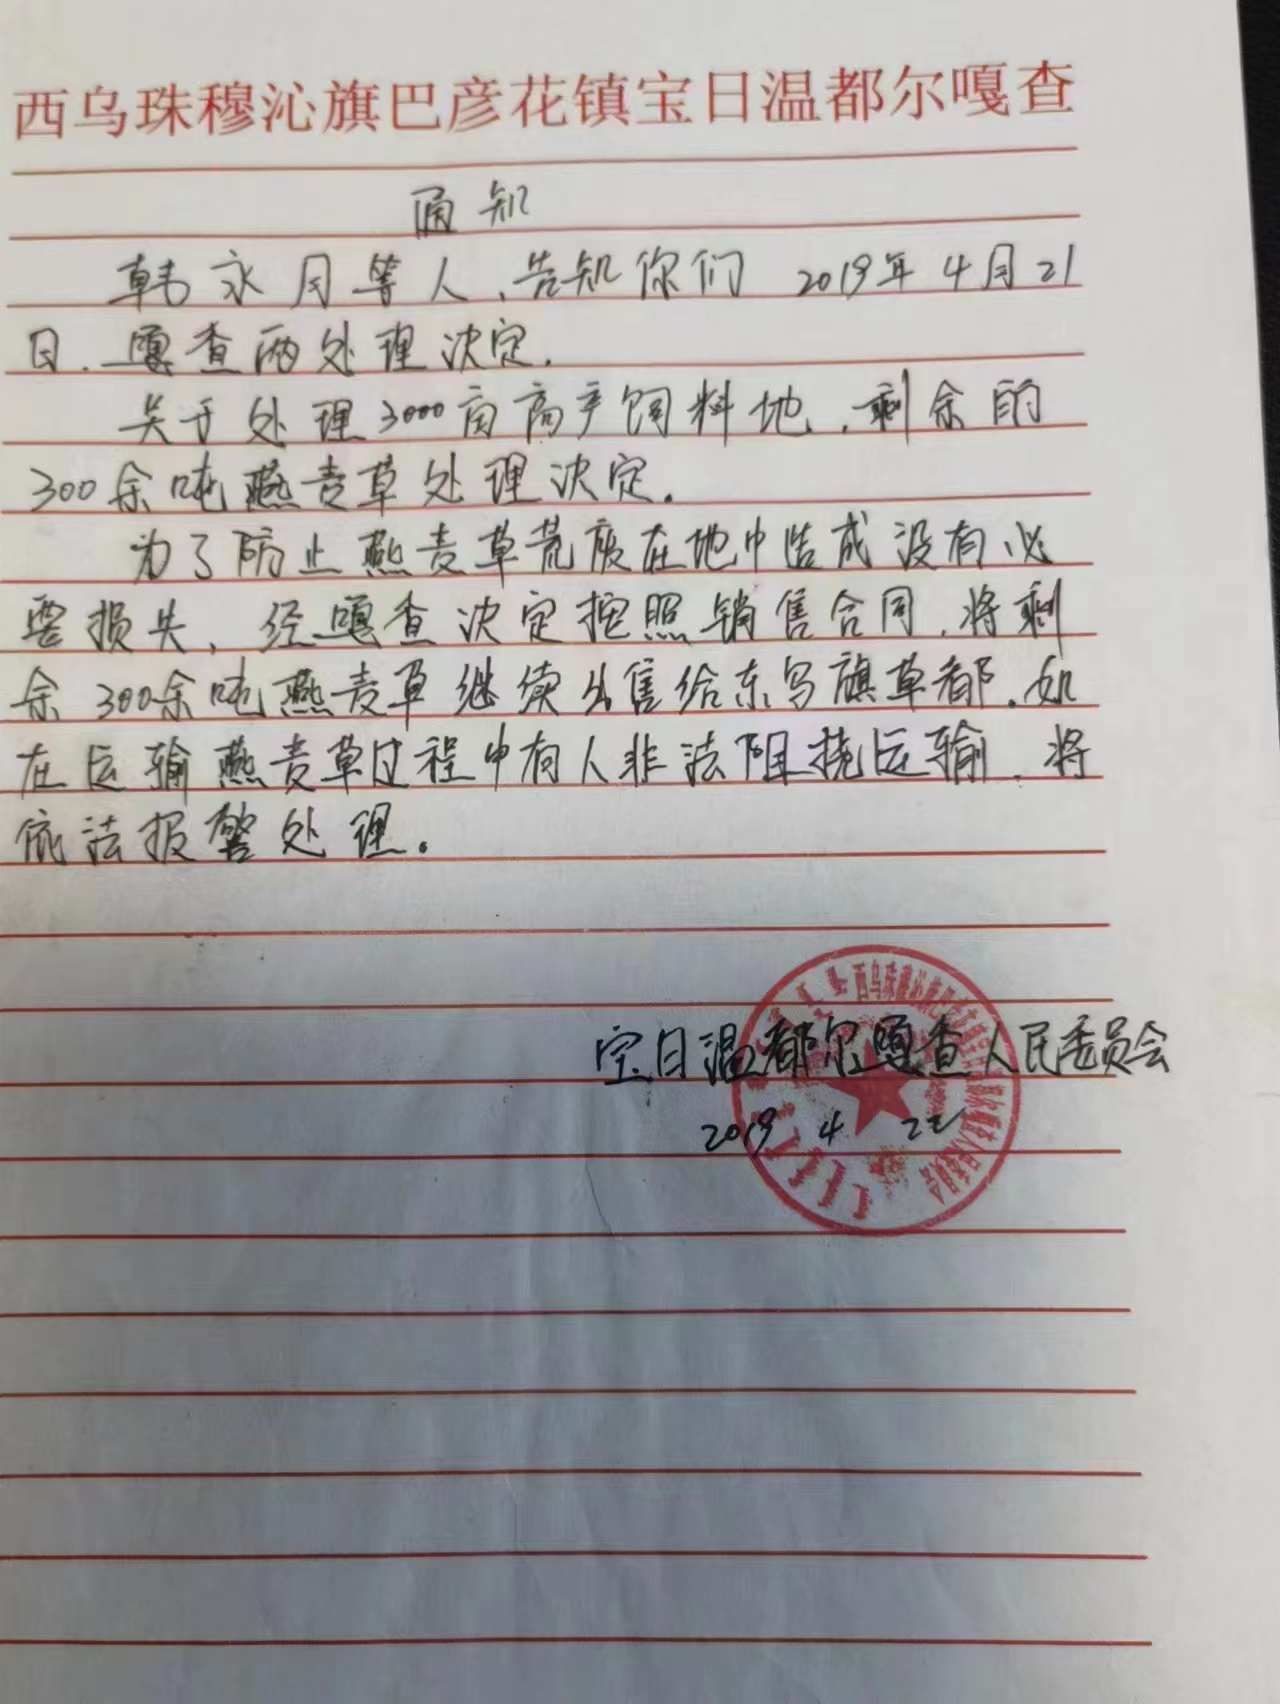 西乌珠穆沁旗巴彦花镇宝日温都尔嘎查
通知
韩永月等人、告知你们 2019年4月21
日、嘎查两处理决定.
关于处理3000亩高产饲料地,剩余的
300余吨燕麦草处理决定.
为了防止燕麦草荒废在地中造成没有必
要损失,经嘎查决定按照销售合同,将剩
余300余吨燕麦草继续出售给东乌旗草都.如
在运输燕麦草过程中有人非法阻挠运输,将
依法报警处理。
宝日温都尔嘎查人民委员会
2019 4 22